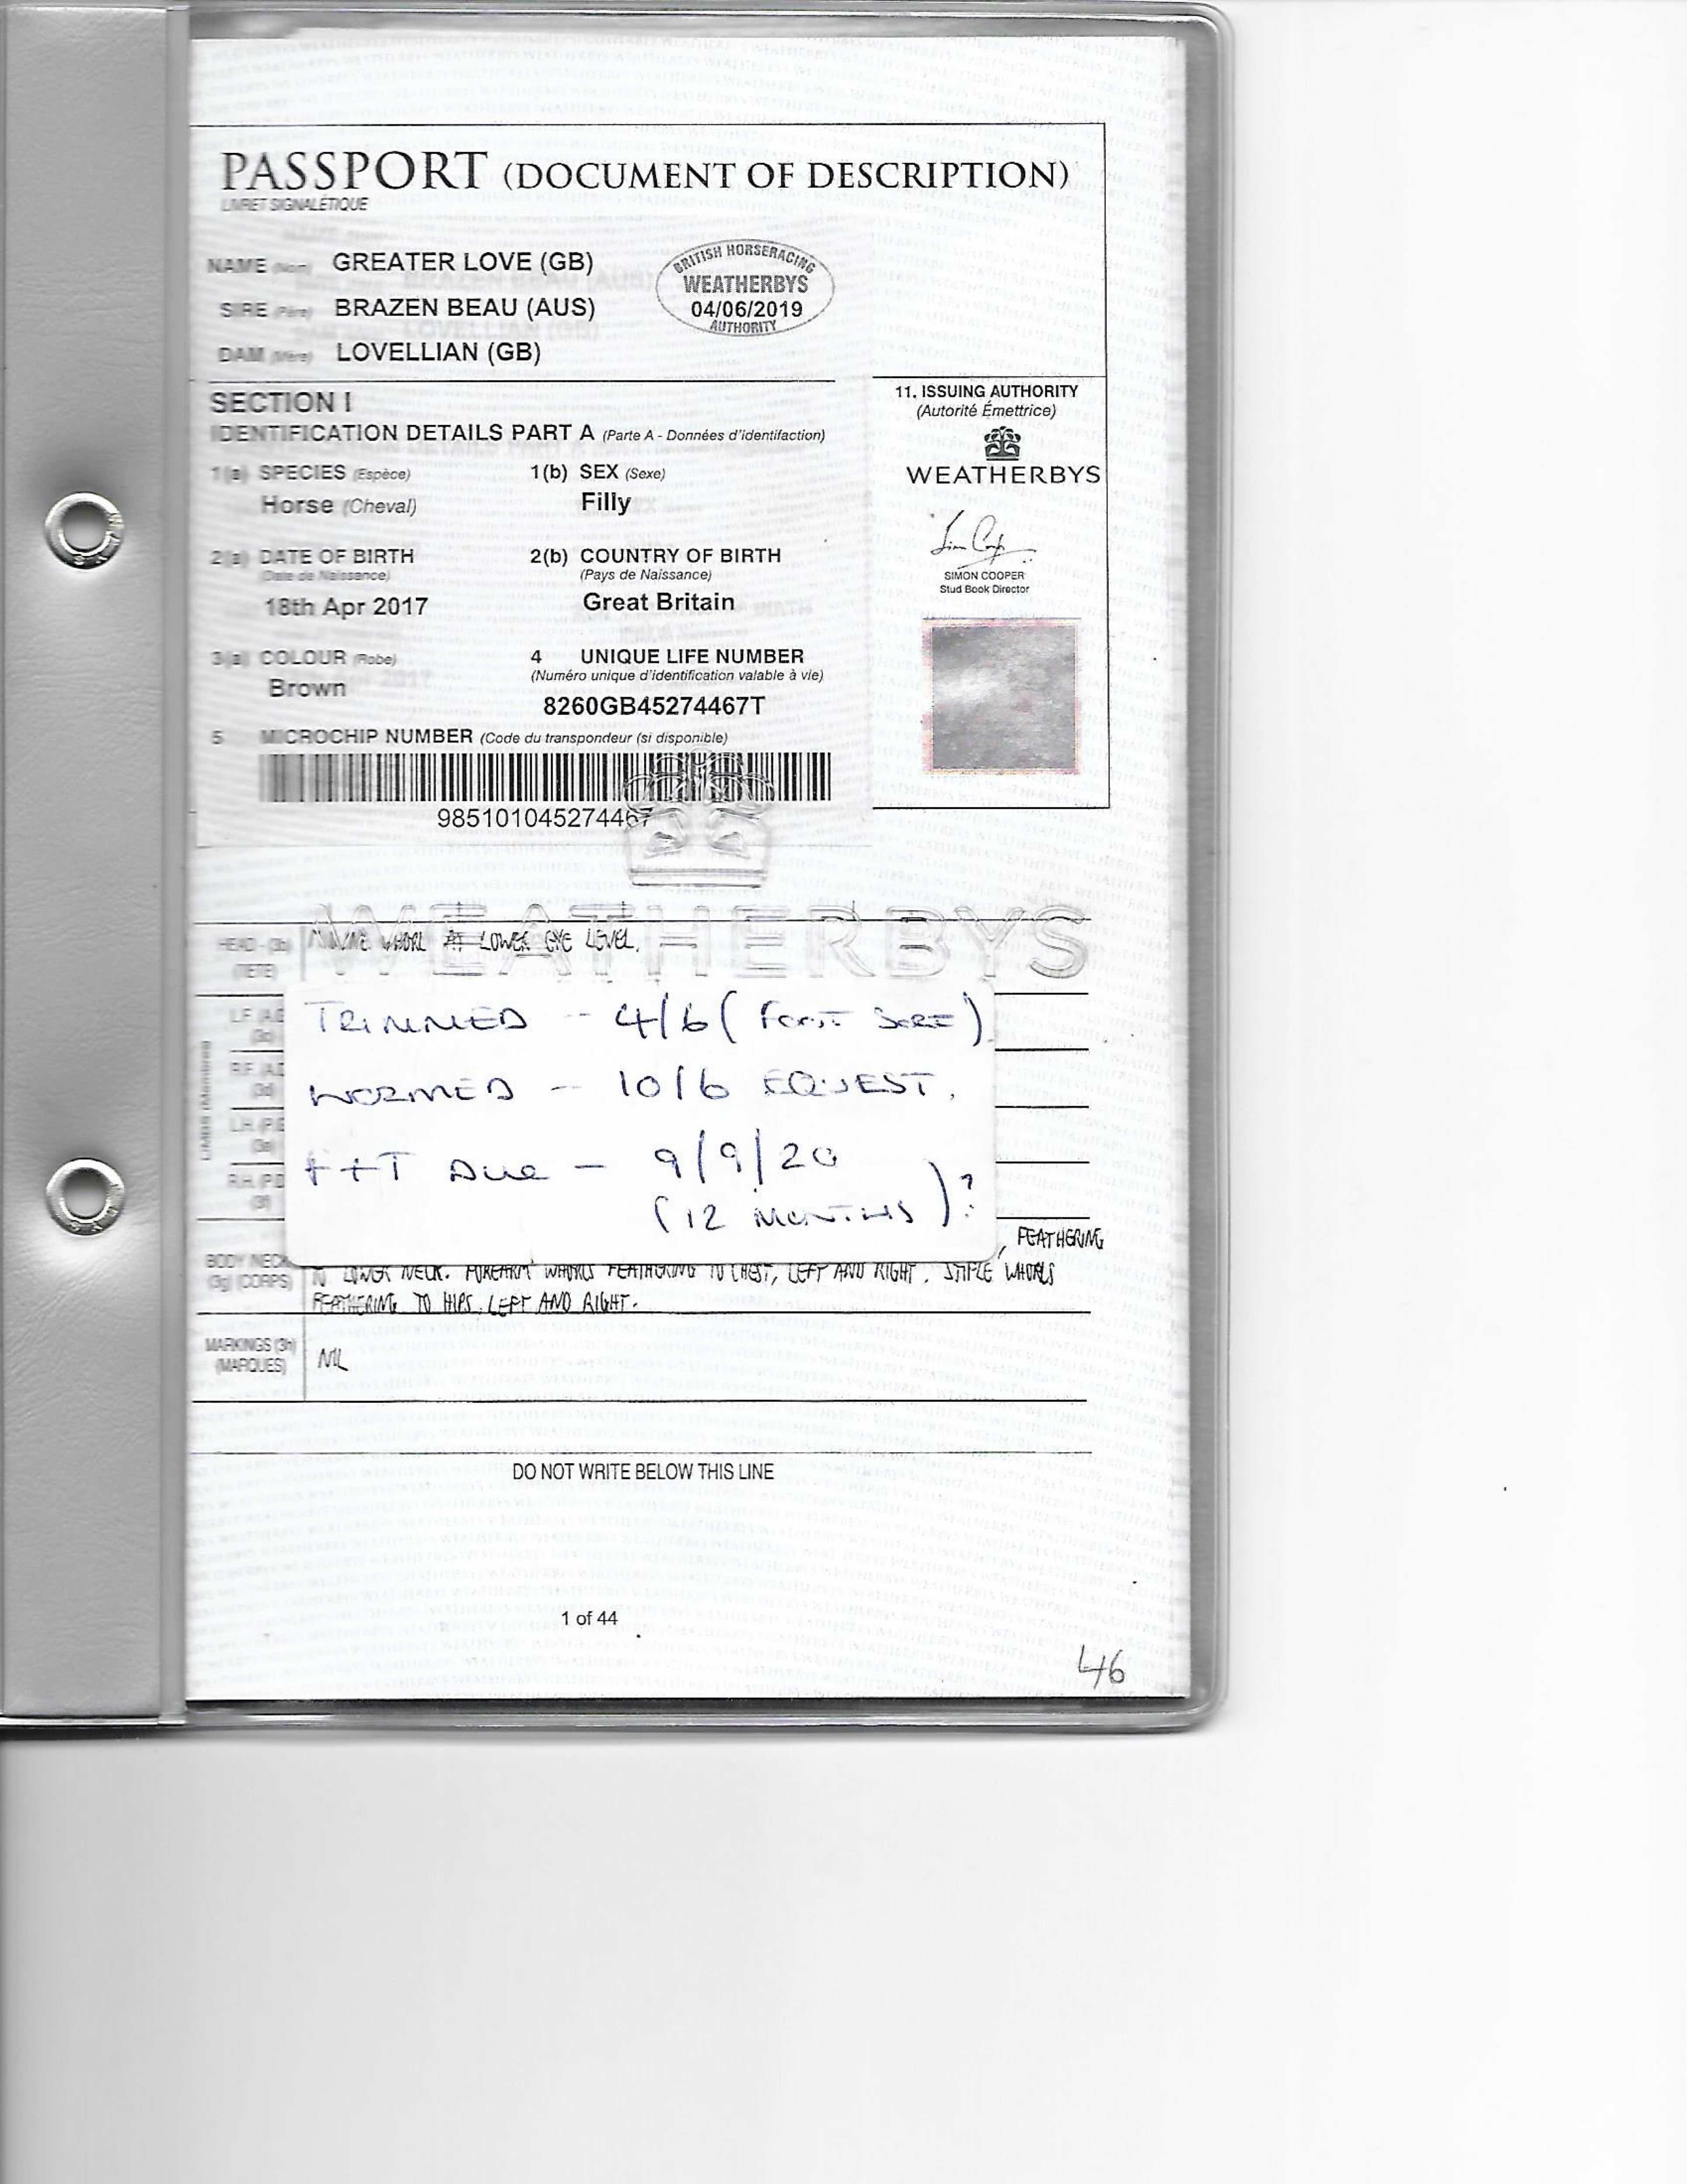 PASSPORT (DOCUMENT OF DESCRIPTION)
LIVRET SIGNALÉTIQUE
NAME (Nom) GREATER LOVE (GB)
SIRE (Père) BRAZEN BEAU (AUS)
DAM (Mère) LOVELLIAN (GB)
BRITISH HORSERACING
WEATHERBYS
04/06/2019
AUTHORITY
SECTION I
IDENTIFICATION DETAILS PART A (Parte A - Données d'identifaction)
1(a) SPECIES (Espèce) 1(b) SEX (Sexe)
Horse (Cheval) Filly
2(a) DATE OF BIRTH 2(b) COUNTRY OF BIRTH
(Date de Naissance) (Pays de Naissance)
18th Apr 2017 Great Britain
3(a) COLOUR (Robe) 4 UNIQUE LIFE NUMBER
(Numéro unique d'identification valable à vie)
Brown
8260GB45274467T
5 MICROCHIP NUMBER (Code du transpondeur (si disponible)
985101045274467
11. ISSUING AUTHORITY
(Autorité Émettrice)
WEATHERBYS
SIMON COOPER
Stud Book Director
WEATHERBYS
HEAD - (3b) WHORL AT LOWER EYE LEVEL.
(TETE)
L.F. (A.G
(3c)
R.F. (A.D
(3d)
L.H. (P.G
(3e)
R.H. (P.D
(3f)
LIMBS (Membres)
TRIMMED - 4/6 (FOOT SORE)
WORMED - 10/6 EQUEST.
F+T Due - 9/9/20
(12 MONTHS)?
, FEATHERING
BODY NECK
(3g) (CORPS) TO LOWER NECK. FOREARM WHORLS FEATHERING TO CHEST, LEFT AND RIGHT. STIFLE WHORLS
FEATHERING TO HIPS, LEFT AND RIGHT.
MARKINGS (3h) NIL
(MARQUES)
DO NOT WRITE BELOW THIS LINE
1 of 44
46